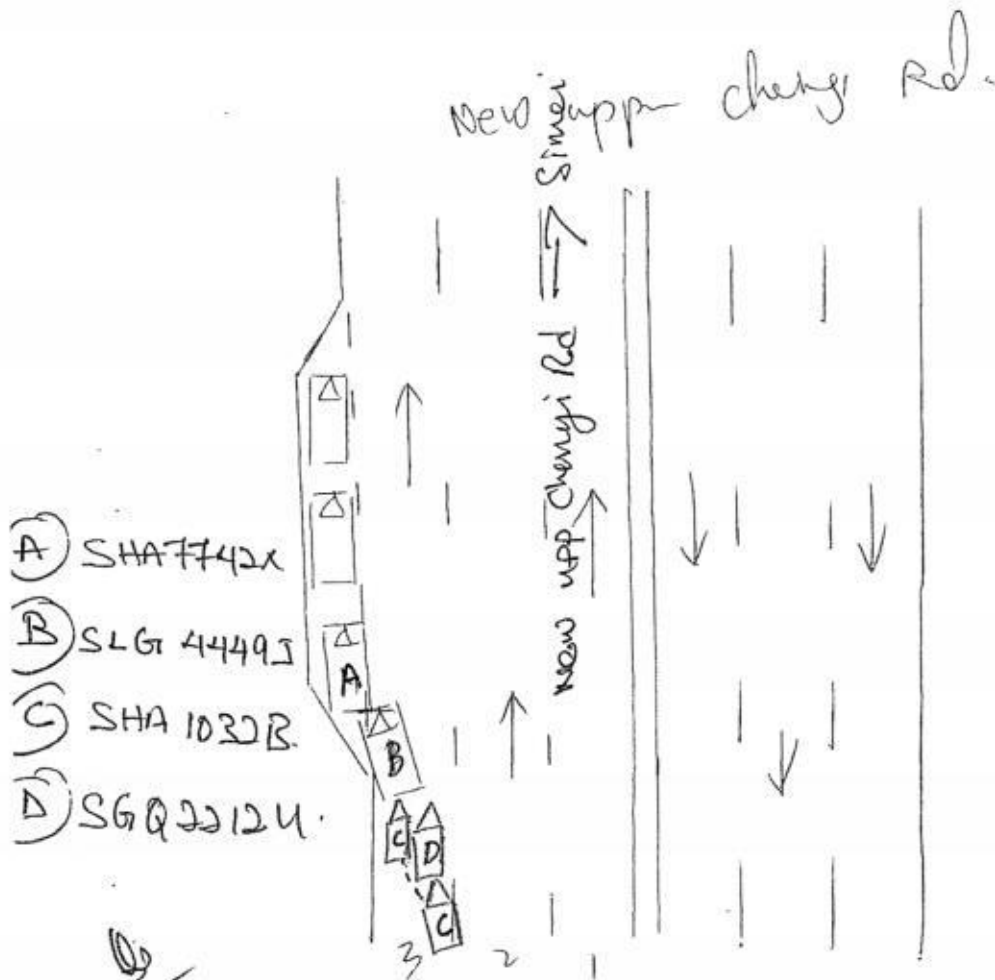 New upp changi Rd.
New upp Changi Rd → Simei
A SHA7742X
B SLG 4449J
C SHA 1032B.
D SGQ2212U.
A
B
C
D
C
3 2 1